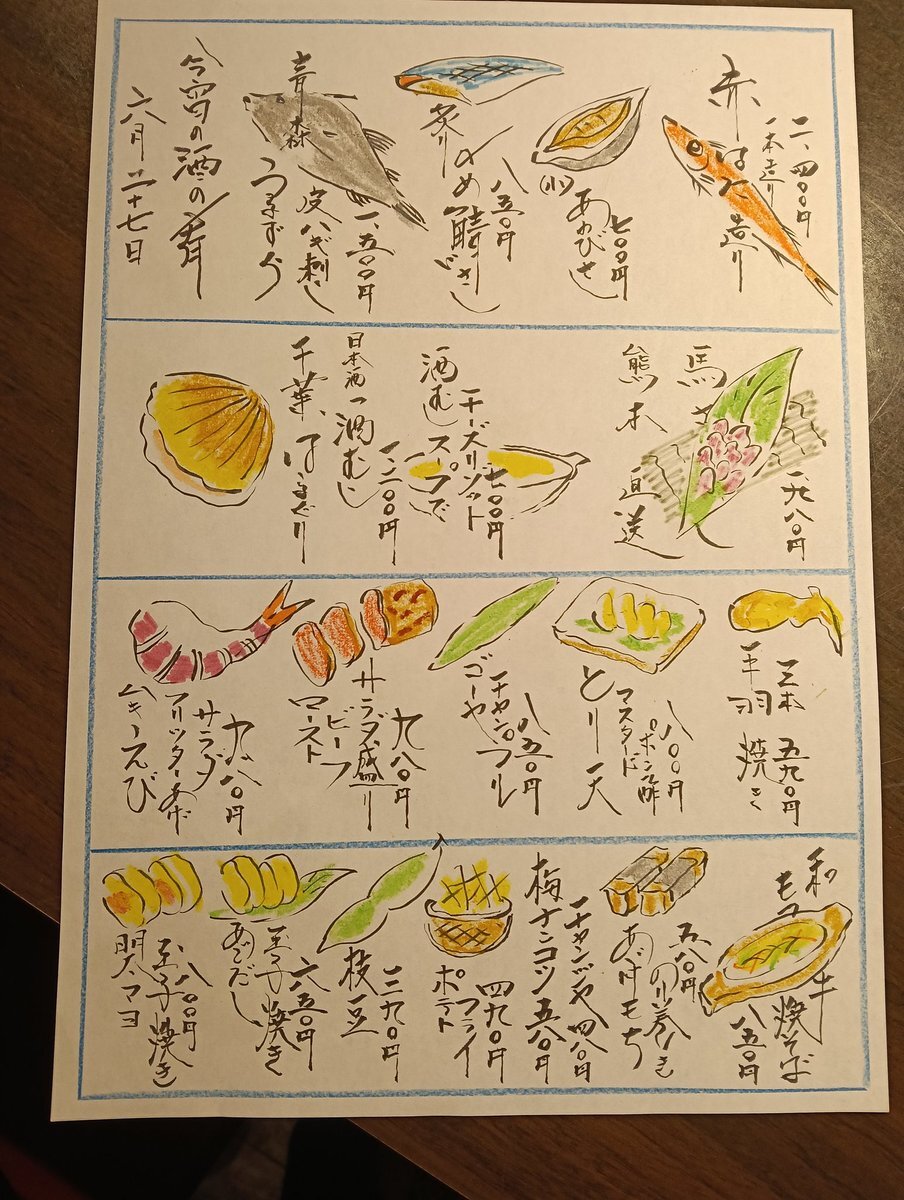 二、四〇〇円
一本造り
赤はた造り
七〇〇円
あわびさし
(小)
八五〇円
〆め鯖ざし
炙り
一、五〇〇円
皮ハギ刺し
うすずくり
青森
今宵の酒の肴
六月二十七日
一、九八〇円
馬さし
熊本直送
七〇〇円
チーズリゾット
酒むしスープで
一、二〇〇円
日本酒酒むし
千葉、はまぐり
三本 五九〇円
手羽焼き
八〇〇円
ポン酢
マスタード
とり天
八五〇円
チャンプル
ゴーヤ
九八〇円
サラダ盛り
ビーフ
ロースト
九八〇円
サラダ
フリッターあげ
ムキーえび
和牛
モツ
焼そば
八五〇円
五八〇円
のり巻むき
あげモチ
チャンジャ 四八〇円
梅ナンコツ 五八〇円
四九〇円
フライ
ポテト
三九〇円
枝豆
六五〇円
玉子焼き
あごだし
八〇〇円
玉子焼き
明太マヨ